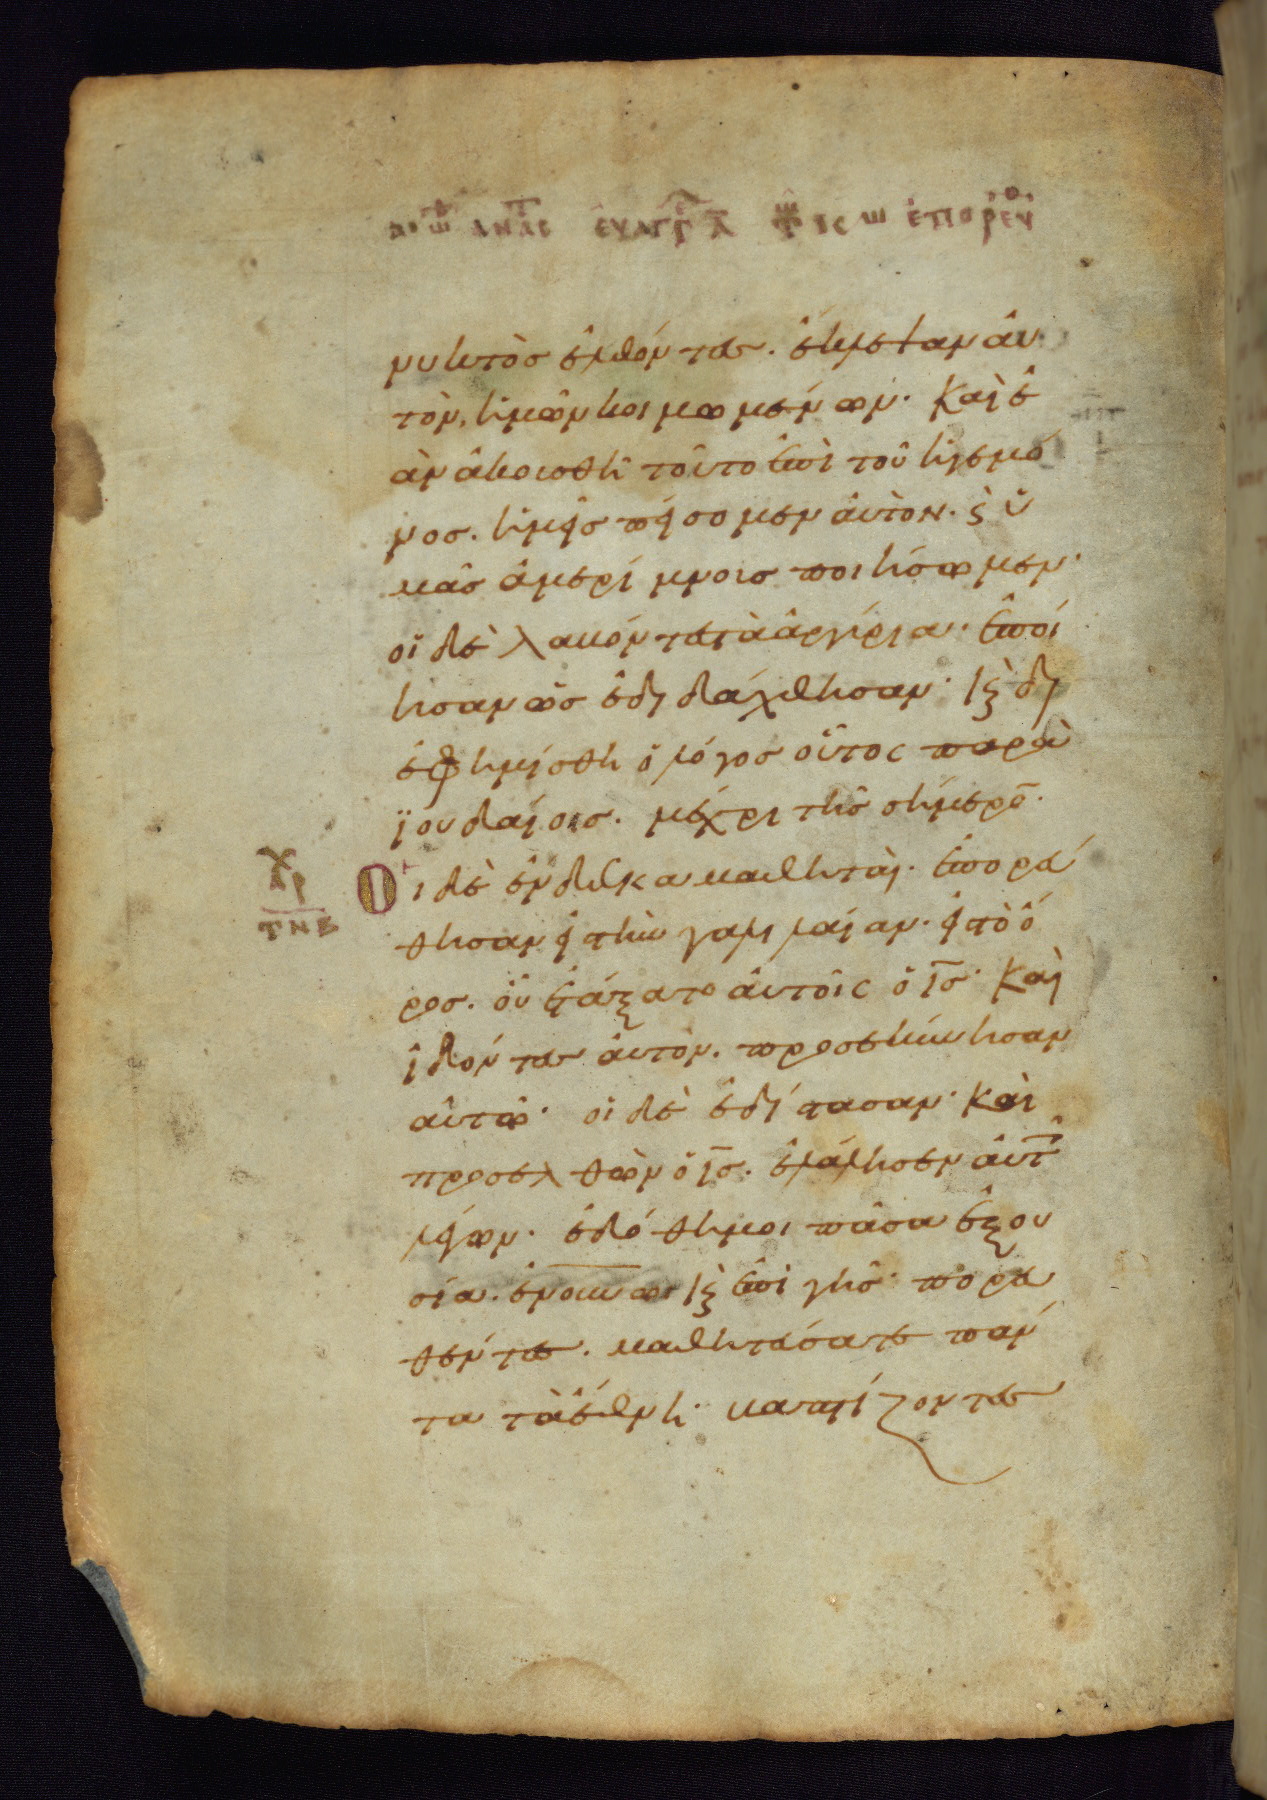 νυκτὸσ ἐλθόντες. ἔκλεψαν ἀυ
τὸν, ἡμῶν κοιμωμένων. Καὶ ἐ
ὰν ἀκουσθῆ τοῦτο ἐπὶ τοῦ ἡγεμό
νος. ἡμεῖσ πείσομεν ἀυτὸν. ϗ ὑ
μᾶσ ἀμερίμνουσ ποιήσωμεν.
οἱ δὲ λαβόντες τὰ ἀργύρια. ἐποί
ησαν ὡσ ἐδιδάχθησαν. ϗ δι
εφημίσθη ὁ λόγοσ οὗτος παρὰ
ϊουδαίοισ. μέχρι τῆσ σήμερο̅.
Οι δὲ ἕνδεκα μαθηταὶ. ἐπορεύ
θησαν εἰσ τὴν γαλιλαίαν. εἰσ τὸ ὄ
ροσ. οὗ ἐτάξατο ἀυτοῖς ὁ ι̅σ̅. Καὶ
ἰδόντες ἀυτὸν. προσεκύνησαν
αὐτῶ. οἱ δὲ ἐδίστασαν. Καὶ
προσελθὼν ὁ ι̅σ̅. ἐλάλησεν ἀυτ
λέγων. ἐδόθη μοι πᾶσα ἐξου
σία. ἐν ο̅υ̅ν̅ω̅ ϗ ἐπὶ γῆσ. πορευ
θέντες. μαθητεύσατε πάν
τα τὰ ἔθνη. βαπτίζοντες